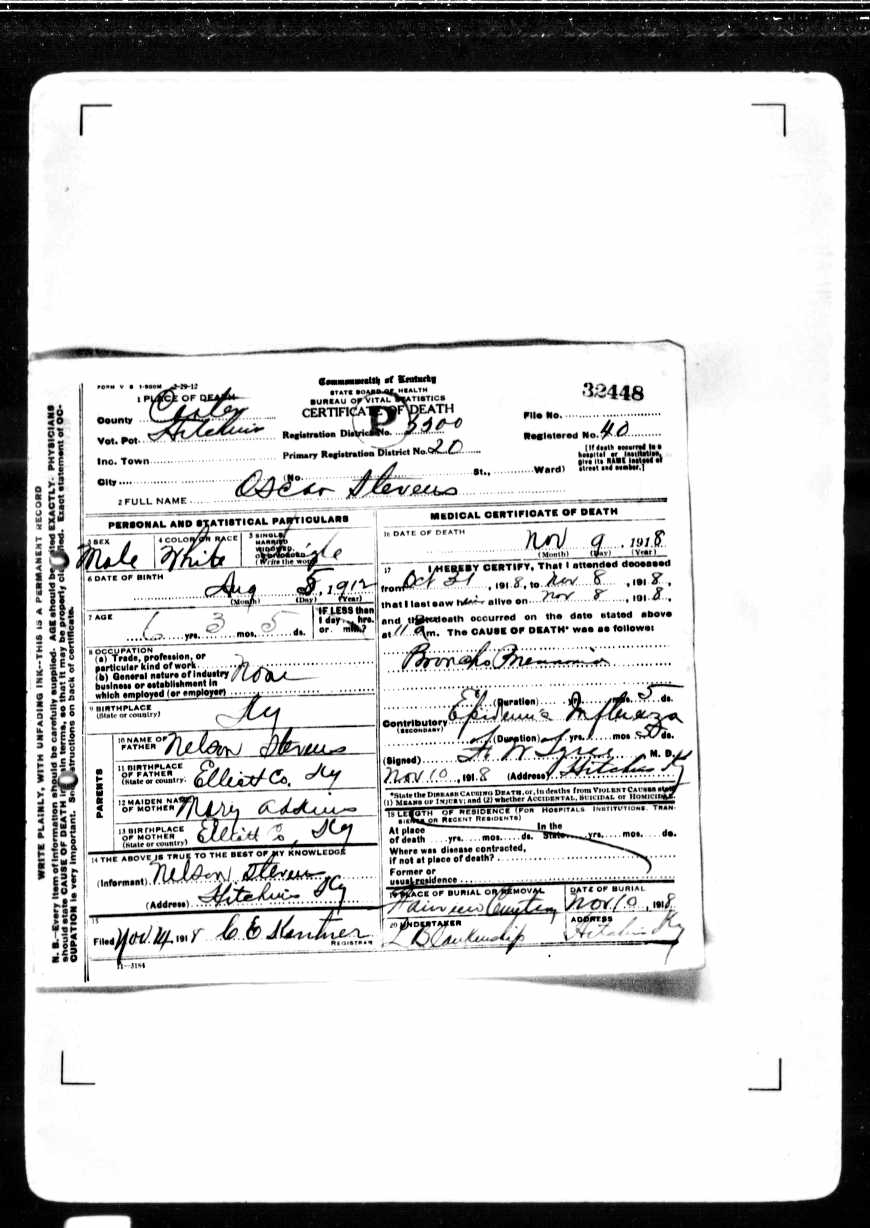 FORM V S 1-500M 2-29-12
Commonwealth of Kentucky
STATE BOARD OF HEALTH
BUREAU OF VITAL STATISTICS
CERTIFICATE OF DEATH
P
32448
1 PLACE OF DEATH
County Carter
Vot. Pct. Hitchins
Inc. Town
City
Registration District No. 5500
Primary Registration District No. 20
(No. St., Ward)
File No.
Registered No. 40
[If death occurred in a hospital or institution, give its NAME instead of street and number.]
2 FULL NAME Oscar Stevens
PERSONAL AND STATISTICAL PARTICULARS
3 SEX Male
4 COLOR OR RACE White
5 SINGLE, MARRIED WIDOWED, OR DIVORCED (Write the word)
6 DATE OF BIRTH Aug 5, 1912
(Month) (Day) (Year)
7 AGE 6 yrs. 3 mos. 5 ds.
IF LESS than 1 day, hrs. or min.?
8 OCCUPATION
(a) Trade, profession, or particular kind of work
(b) General nature of industry business or establishment in which employed (or employer) None
9 BIRTHPLACE (State or country) Ky
PARENTS
10 NAME OF FATHER Nelson Stevens
11 BIRTHPLACE OF FATHER (State or country) Elliott Co, Ky
12 MAIDEN NAME OF MOTHER Mary Addins
13 BIRTHPLACE OF MOTHER (State or country) Elliott Co, Ky
14 THE ABOVE IS TRUE TO THE BEST OF MY KNOWLEDGE
(Informant) Nelson Stevens
(Address) Hitchins Ky
15
Filed Nov 14 1918 C E Kentner
REGISTRAR
11-3184
MEDICAL CERTIFICATE OF DEATH
16 DATE OF DEATH Nov 9, 1918
(Month) (Day) (Year)
17 I HEREBY CERTIFY, That I attended deceased
from Oct 31, 1918, to Nov 8, 1918,
that I last saw him alive on Nov 8, 1918,
and that death occurred on the date stated above
at 11 am. The CAUSE OF DEATH* was as follows:
Broncho Pneumonia
(Duration) yrs. mos. 5 ds.
Contributory Epidemic Influenza
(SECONDARY)
(Duration) yrs. mos. ds.
(Signed) M. D.
Nov 10, 1918 (Address) Hitchins Ky
*State the DISEASE CAUSING DEATH, or, in deaths from VIOLENT CAUSES state
(1) MEANS OF INJURY; and (2) whether ACCIDENTAL, SUICIDAL or HOMICIDAL.
18 LENGTH OF RESIDENCE (FOR HOSPITALS INSTITUTIONS, TRANSIENTS OR RECENT RESIDENTS)
At place of death yrs. mos. ds. In the State yrs. mos. ds.
Where was disease contracted, if not at place of death?
Former or usual residence
19 PLACE OF BURIAL OR REMOVAL Fairview Cemetery
DATE OF BURIAL Nov 10, 1918
20 UNDERTAKER L Blankenship
ADDRESS Hitchins Ky
WRITE PLAINLY, WITH UNFADING INK--THIS IS A PERMANENT RECORD
N. B.--Every item of information should be carefully supplied. AGE should be stated EXACTLY. PHYSICIANS
should state CAUSE OF DEATH in plain terms, so that it may be properly classified. Exact statement of OC-
CUPATION is very important. See instructions on back of certificate.